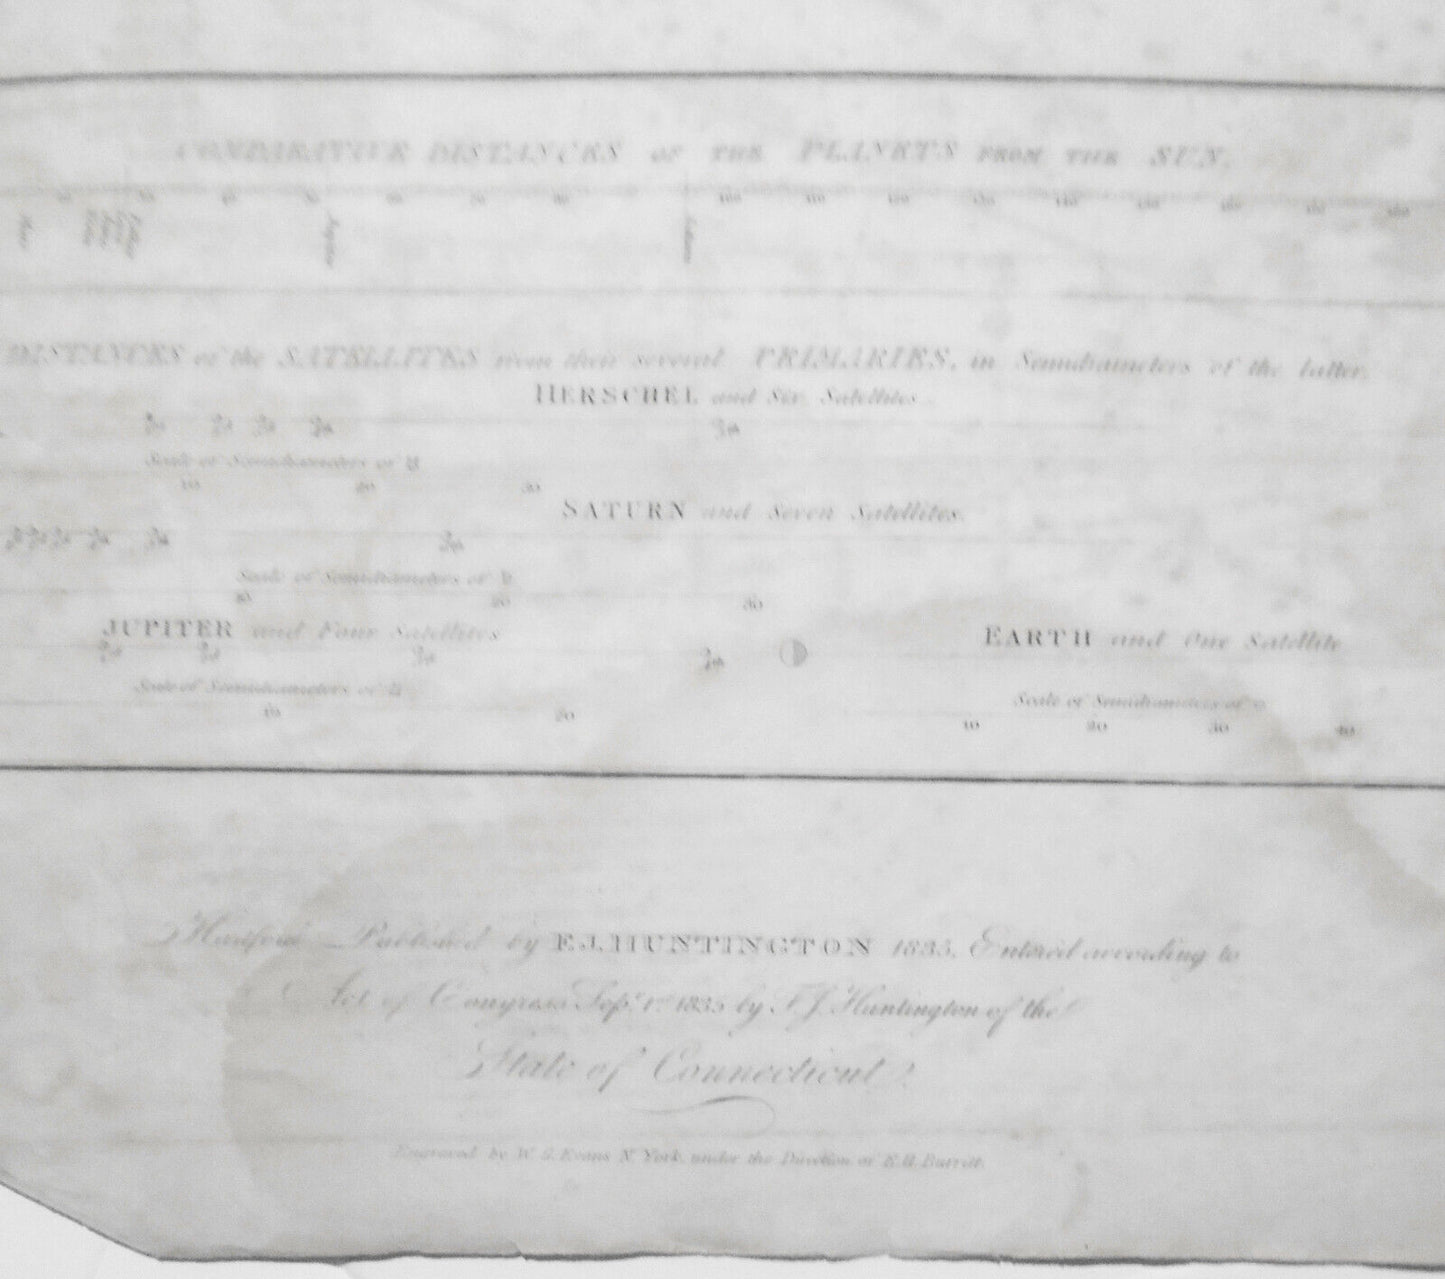 COMPARATIVE DISTANCES OF THE PLANETS FROM THE SUN.
100 110 120 130 140 150 160
DISTANCES of the SATELLITES from their several PRIMARIES, in Semidiameters of the latter.
HERSCHEL and Six Satellites.
Scale of Semidiameters of ♅
10 20 30
SATURN and Seven Satellites.
Scale of Semidiameters of ♄
10 20 30
JUPITER and Four Satellites
EARTH and One Satellite
Scale of Semidiameters of ♃
Scale of Semidiameters of
10 20
10 20 30 40
Hartford Published by F.J. HUNTINGTON 1835, Entered according to
Act of Congress Sepr. 1st 1835 by F. J. Huntington of the
State of Connecticut
Engraved by W. G. Evans N. York, under the Direction of E.H. Burritt.